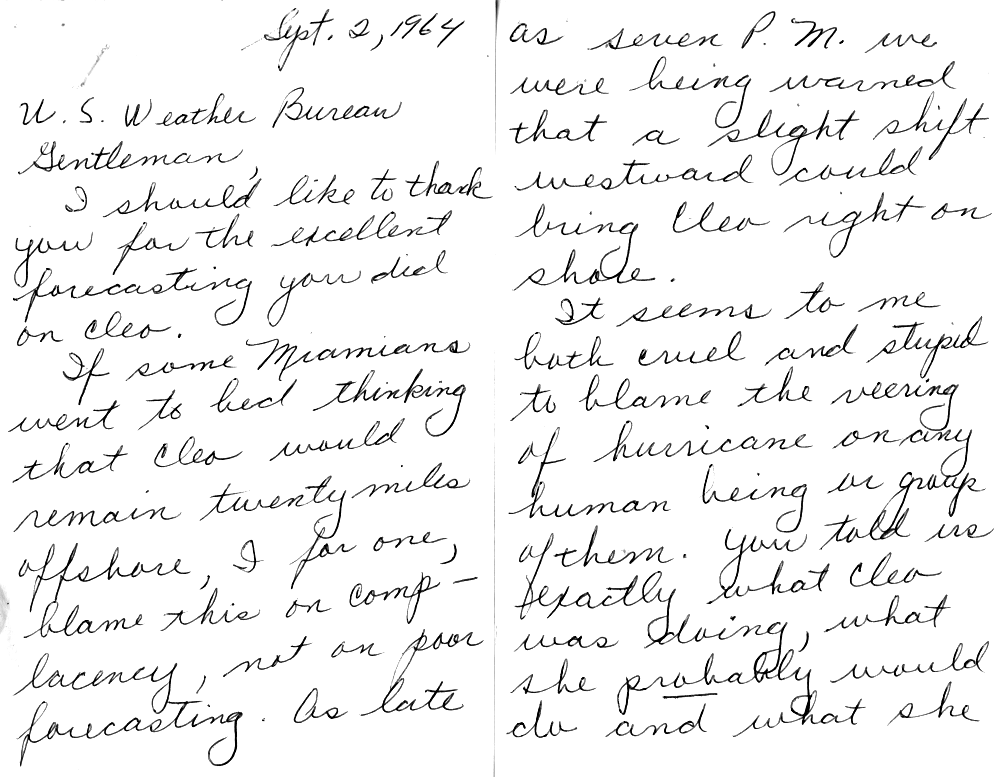 Sept. 2, 1964
U. S. Weather Bureau
Gentleman,
I should like to thank
you for the excellent
forecasting you did
on Cleo.
If some Miamians
went to bed thinking
that Cleo would
remain twenty miles
offshore, I for one,
blame this on comp-
lacency, not on poor
forecasting. As late
as seven P. M. we
were being warned
that a slight shift
westward could
bring Cleo right on
shore.
It seems to me
both cruel and stupid
to blame the veering
of hurricane on any
human being or group
of them. You told us
exactly what Cleo
was doing, what
she probably would
do and what she